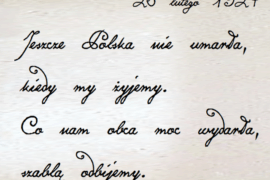 lutego
Jeszcze Polska nie umarła,
kiedy my żyjemy.
Co nam obca moc wydarła,
szablą odbijemy.